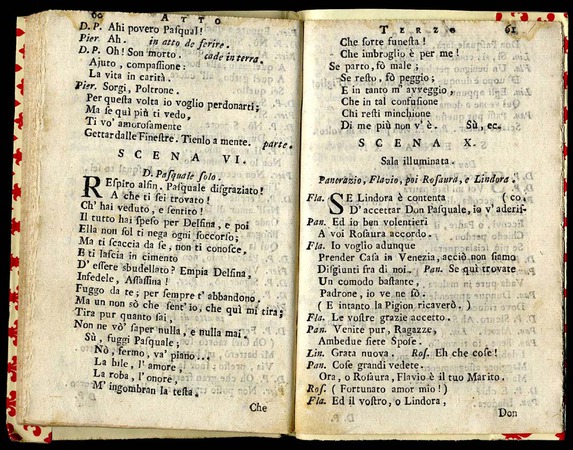 60 ATTO
D. P. Ahi povero Pasqual!
Pier. Ah. in atto de ferire.
D. P. Oh! Son morto. cade in terra.
Ajuto, compassione:
La vita in carità.
Pier. Sorgi, Poltrone.
Per questa volta io voglio perdonarti;
Ma se quì più ti vedo,
Ti vo' amorosamente
Gettar dalle Finestre. Tienlo a mente. parte.
SCENA VI.
D. Pasquale solo.
REspiro alfin. Pasquale disgraziato!
A che ti sei trovato!
Ch' hai veduto, e sentito!
Il tutto hai speso per Delfina, e poi
Ella non sol ti nega ogni soccorso;
Ma ti scaccia da se; non ti conosce,
E ti lascia in cimento
D' essere sbudellato? Empia Delfina,
Infedele, Assassina!
Fuggo da te; per sempre t' abbandono.
Ma un non sò che sent' io, che quì mi tira;
Tira pur quanto sai,
Non ne vò' saper nulla, e nulla mai.
Sù, fuggi Pasquale;
Nò, fermo, va' piano...
La bile, l' amore,
La roba, l' onore,
M' ingombran la testa.
Che
TERZO 61
Che forte funesta!
Che imbroglio è per me!
Se parto, fò male;
Se resto, fò peggio;
E in tanto m' avveggio,
Che in tal confusione
Chi resti minchione
Di me più non v' è. Sù, ec.
SCENA X.
Sala illuminata.
Pancrazio, Flavio, poi Rosaura, e Lindora.
Fla. SE Lindora è contenta ( co.
D' accettar Don Pasquale, io v' aderis-
Pan. Ed io ben volentieri
A voi Rosaura accordo.
Fla. Io voglio adunque
Prender Casa in Venezia, acciò non siamo
Disgiunti fra di noi. Pan. Se quì trovate
Un comodo bastante,
Padrone, io ve ne fò.
( E intanto la Pigion ricaverò. )
Fla. Le vostre grazie accetto.
Pan. Venite pur, Ragazze,
Ambedue siete Spose.
Lin. Grata nuova. Ros. Eh che cose!
Pan. Cose grandi vedete.
Ora, o Rosaura, Flavio è il tuo Marito.
Ros. ( Fortunato amor mio! )
Fla. Ed il vostro, o Lindora,
Don